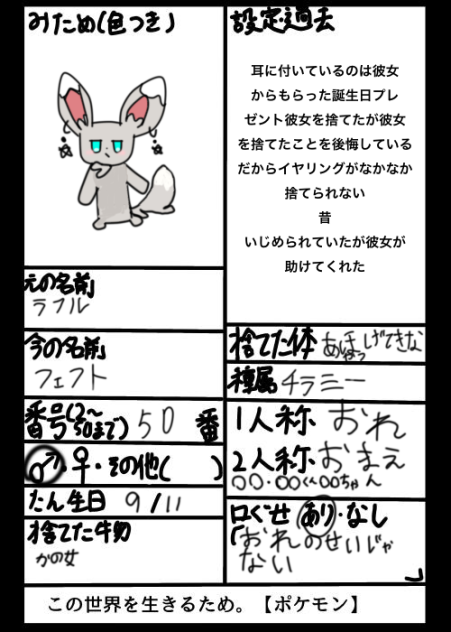 みため(色つき)
設定・過去
耳に付いているのは彼女
からもらった誕生日プレ
ゼント彼女を捨てたが彼女
を捨てたことを後悔している
だからイヤリングがなかなか
捨てられない
昔
いじめられていたが彼女が
助けてくれた
元の名前
ラフル
今の名前
フェフト
番号(2〜50まで) 50 番
♂・♀・その他( )
たん生日 9/11
捨てた牛勿
かの女
捨てた体
種属 チラミー
1人称 おれ
2人称 おまえ
○○・○○くん○○ちゃん
口ぐせ あり・なし
「おれのせいじゃ
ない
」
この世界を生きるため。【ポケモン】